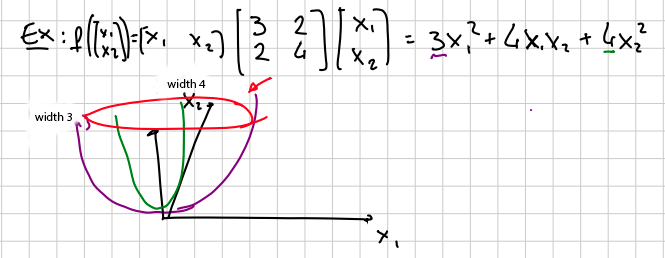 Ex: f([x₁ x₂]) = [x₁ x₂] [3 2 2 4] [x₁ x₂] = 3x₁² + 4x₁x₂ + 4x₂²
width 4
x₂
width 3
x₁